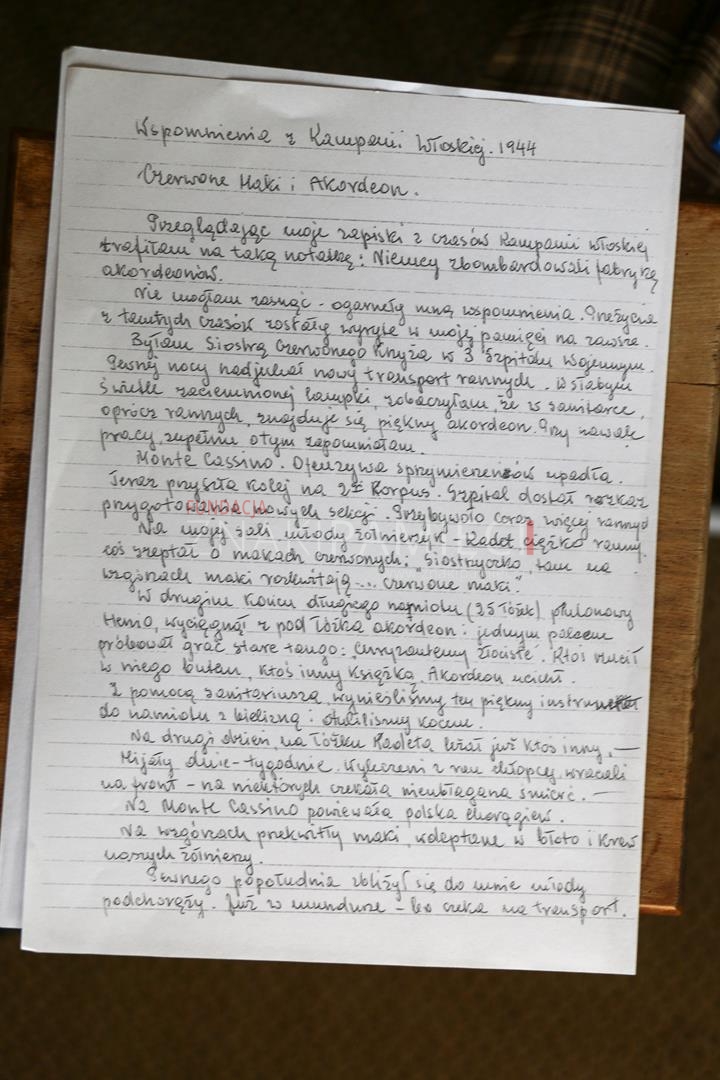 Wspomnienia z Kampanii Włoskiej. 1944
Czerwone Maki i Akordeon.
Przeglądając moje zapiski z czasów Kampanii włoskiej
trafiłam na taką notatkę: Niemcy zbombardowali fabrykę
akordeonów.
Nie mogłam zasnąć - ogarnęły mną wspomnienia. Przeżycia
z tamtych czasów zostały wyryte w mojej pamięci na zawsze.
Byłam Siostrą Czerwonego Krzyża w 3 Szpitalu Wojennym.
Pewnej nocy nadjechał nowy transport rannych. W słabym
świetle zaciemnionej lampki, zobaczyłam, że w sanitarce,
oprócz rannych, znajduje się piękny akordeon. Przy nawale
pracy, zupełnie o tym zapomniałam.
Monte Cassino. Ofenzywa sprzymierzeńców upadła.
Teraz przyszła kolej na 2gi Korpus. Szpital dostał rozkaz
przygotowania nowych sekcji. Przybywało coraz więcej rannych
FUNDACJA
NA RZECZ PAMIĘCI
Na mojej sali młody żołnierzyk - Kadet, ciężko ranny,
coś szeptał o makach czerwonych: "Siostrzyczko, tam na
wzgórzach maki rozkwitają... czerwone maki".
W drugim końcu długiego namiotu (35 łóżek) plutonowy
Henio, wyciągnął z pod łóżka akordeon i jednym palcem
próbował grać stare tango: "Chryzantemy złociste". Ktoś rzucił
w niego butem, ktoś inny książką. Akordeon ucichł.
Z pomocą sanitariusza, wynieśliśmy ten piękny instrument
do namiotu z bielizną i otuliliśmy kocem.
Na drugi dzień, na łóżku Kadeta leżał już ktoś inny. —
Mijały dnie - tygodnie. Wyleczeni z ran chłopcy, wracali
na front - na niektórych czekała nieubłagana śmierć. —
Na Monte Cassino powiewała polska chorągiew.
Na wzgórzach przekwitły maki, wdeptane w błoto i krew
naszych żołnierzy.
Pewnego popołudnia zbliżył się do mnie młody
podchorąży. Już w mundurze - bo czeka na transport.